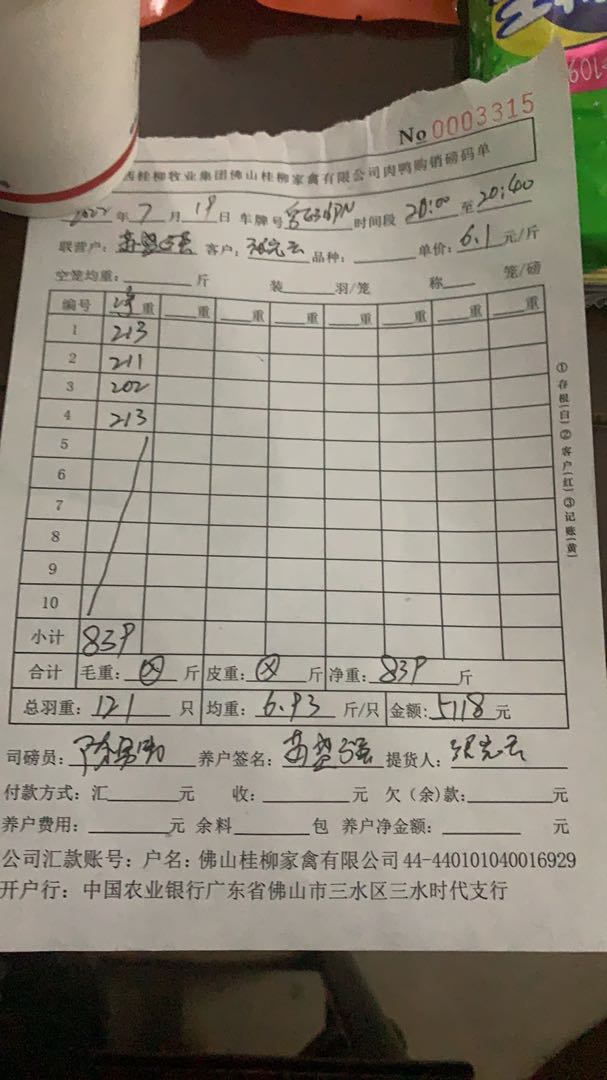 No 0003315
西桂柳牧业集团佛山桂柳家禽有限公司肉鸭购销磅码单
2022年7月19日 车牌号 时间段 20:00至20:40
联营户: 客户: 品种: 单价:6.1元/斤
空笼均重: 斤 装 羽/笼 称 笼/磅
编号 净重 重 重 重 重 重 重 重
1 213
2 211
3 202
4 213
5
6
7
8
9
10
小计 839
合计 毛重: 斤 皮重: 斤 净重:839斤
总羽重:121只 均重:6.93斤/只 金额:5118元
司磅员: 养户签名: 提货人:
付款方式:汇 元 收: 元 欠(余)款: 元
养户费用: 元 余料 包 养户净金额: 元
公司汇款账号:户名:佛山桂柳家禽有限公司 44-440101040016929
开户行:中国农业银行广东省佛山市三水区三水时代支行
①存根(白)②客户(红)③记账(黄)